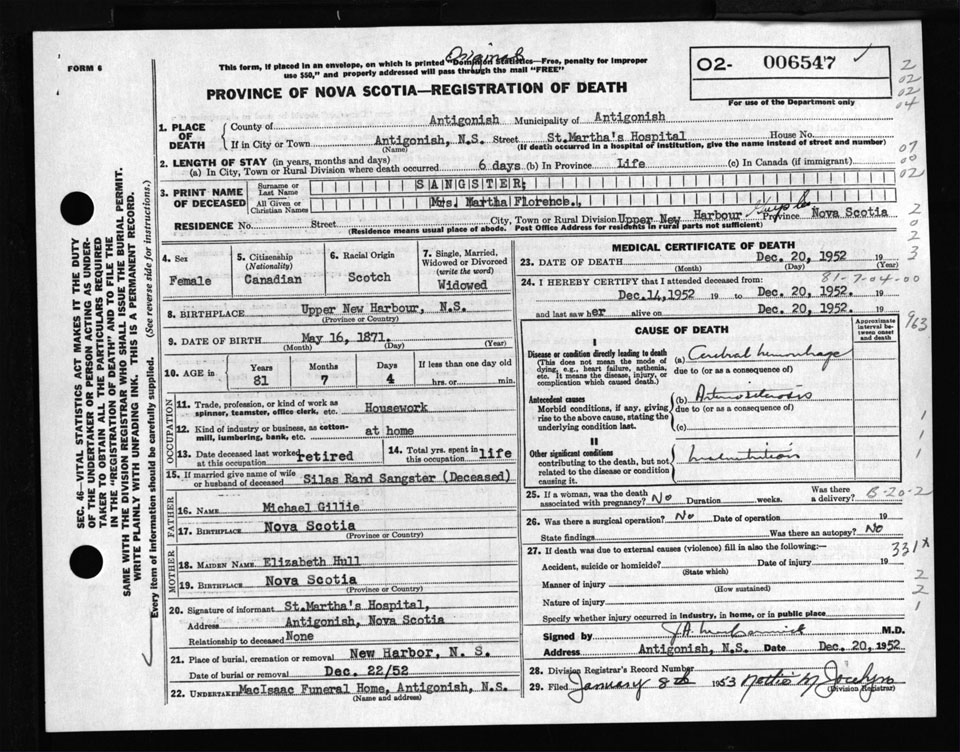 FORM 6
Original
This form, if placed in an envelope, on which is printed "Dominion Statistics—Free, penalty for improper
use $50," and properly addressed will pass through the mail "FREE"
PROVINCE OF NOVA SCOTIA—REGISTRATION OF DEATH
02- 006547
For use of the Department only
2
02
02
04
07
00
02
2
0
2
2
3
SEC. 46—VITAL STATISTICS ACT MAKES IT THE DUTY
OF THE UNDERTAKER OR PERSON ACTING AS UNDER-
TAKER TO OBTAIN ALL THE PARTICULARS REQUIRED
IN THE "REGISTRATION OF DEATH" AND TO FILE THE
SAME WITH THE DIVISION REGISTRAR WHO SHALL ISSUE THE BURIAL PERMIT.
WRITE PLAINLY WITH UNFADING INK. THIS IS A PERMANENT RECORD.
Every item of information should be carefully supplied. (See reverse side for instructions.)
1. PLACE OF DEATH
County of Antigonish Municipality of Antigonish
If in City or Town Antigonish, N.S. Street St.Martha's Hospital House No.
(Name) (If death occurred in a hospital or institution, give the name instead of street and number)
2. LENGTH OF STAY (in years, months and days)
(a) In City, Town or Rural Division where death occurred 6 days (b) In Province Life (c) In Canada (if immigrant)
3. PRINT NAME OF DECEASED
Surname or Last Name SANGSTER,
All Given or Christian Names Mrs. Martha Florence.,
RESIDENCE No. Street City, Town or Rural Division Upper New Harbour Guysboro Province Nova Scotia
(Residence means usual place of abode. Post Office Address for residents in rural parts not sufficient)
4. Sex
Female
5. Citizenship
(Nationality)
Canadian
6. Racial Origin
Scotch
7. Single, Married,
Widowed or Divorced
(write the word)
Widowed
8. BIRTHPLACE Upper New Harbour, N.S.
(Province or Country)
9. DATE OF BIRTH May 16, 1871.
(Month) (Day) (Year)
10. AGE in Years Months Days If less than one day old
81 7 4 hrs. or min.
OCCUPATION
11. Trade, profession, or kind of work as
spinner, teamster, office clerk, etc. Housework
12. Kind of industry or business, as cotton-
mill, lumbering, bank, etc. at home
13. Date deceased last worked
at this occupation retired
14. Total yrs. spent in
this occupation life
15. If married give name of wife
or husband of deceased Silas Rand Sangster (Deceased)
FATHER
16. NAME Michael Gillie
17. BIRTHPLACE Nova Scotia
(Province or Country)
MOTHER
18. MAIDEN NAME Elizabeth Hull
19. BIRTHPLACE Nova Scotia
(Province or Country)
20. Signature of informant St.Martha's Hospital,
Address Antigonish, Nova Scotia
Relationship to deceased None
21. Place of burial, cremation or removal New Harbor, N. S.
Date of burial or removal Dec. 22/52
22. UNDERTAKER MacIsaac Funeral Home, Antigonish, N.S.
(Name and address)
MEDICAL CERTIFICATE OF DEATH
23. DATE OF DEATH Dec. 20, 1952 19
(Month) (Day) (Year)
81-7-04-00
24. I HEREBY CERTIFY that I attended deceased from:
Dec.14,1952 19 to Dec. 20, 1952. 19
and last saw her alive on Dec. 20, 1952. 19
963
CAUSE OF DEATH
Approximate
interval be-
tween onset
and death
I
Disease or condition directly leading to death
(This does not mean the mode of
dying, e.g., heart failure, asthenia,
etc. It means the disease, injury, or
complication which caused death.)
(a) Cerebral hemorrhage
due to (or as a consequence of)
Antecedent causes
Morbid conditions, if any, giving
rise to the above cause, stating the
underlying condition last.
(b) Arteriosclerosis
due to (or as a consequence of)
(c)
II
Other significant conditions
contributing to the death, but not
related to the disease or condition
causing it.
Malnutrition
1
1
1
25. If a woman, was the death
associated with pregnancy? No Duration weeks. Was there
a delivery?
B-20-2
26. Was there a surgical operation? No Date of operation 19
State findings Was there an autopsy? No
27. If death was due to external causes (violence) fill in also the following:—
331x
Accident, suicide or homicide? Date of injury 19
(State which)
2
Manner of injury
(How sustained)
2
Nature of injury
1
Specify whether injury occurred in industry, in home, or in public place
Signed by M.D.
Address Antigonish, N.S. Date Dec. 20, 1952
28. Division Registrar's Record Number
29. Filed January 8th 1953 Nettie M Jocelyn
(Division Registrar)